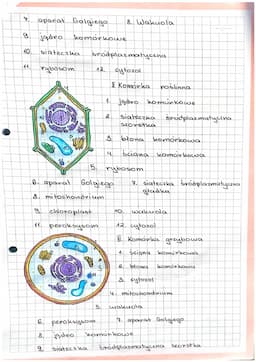 7. aparat Golgiego 8. Wakuola
9. jądro komórkowe
10. siateczka śródplazmatyczna
11. rybosom 12. cytozol
II Komórka roślinna
1. jądro komórkowe
2. siateczka śródplazmatyczna
szorstka
3. błona komórkowa
4. ściana komórkowa
5. rybosom
6. aparat Golgiego 7. siateczka śródplazmatyczna
gładka
8. mitochondrium
9. chloroplast 10. wakuola
11. peroksysom 12. cytozol
III Komórka grzybowa
1. ściana komórkowa
2. błona komórkowa
3. cytozol
4. mitochondrium
5. wakuola
6. peroksysom 7. aparat Golgiego
8. jądro komórkowe
9. siateczka śródplazmatyczna szorstka